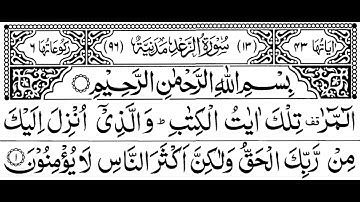 اٰيَاتُهَا ٤٣ (١٣) سُوْرَةُ الرَّعْدِ مَدَنِيَّةٌ (٩٦) رُكُوْعَاتُهَا ٦
بِسْمِ اللّٰهِ الرَّحْمٰنِ الرَّحِيْمِ
الٓمّٓرٰ قف تِلْكَ اٰيٰتُ الْكِتٰبِ ط وَالَّذِيْٓ اُنْزِلَ اِلَيْكَ
مِنْ رَّبِّكَ الْحَقُّ وَلٰكِنَّ اَكْثَرَ النَّاسِ لَا يُؤْمِنُوْنَ ١